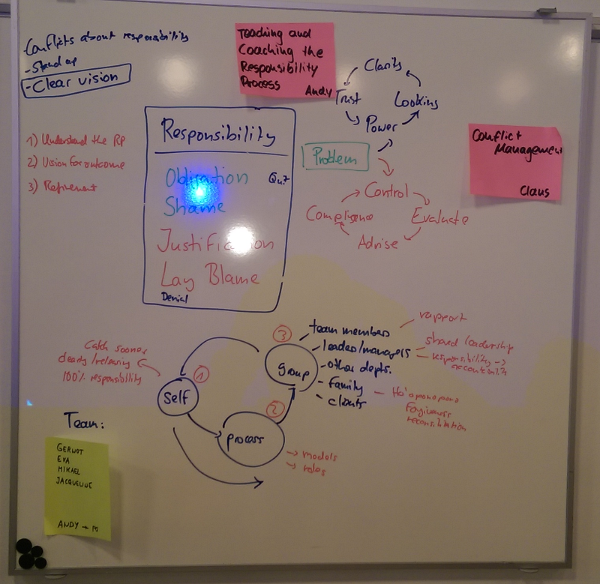 Conflicts about responsibility
- Stand up
- Clear vision
1) Understand the RP
2) Vision for outcome
3) Refinement
Teaching and
Coaching the
Responsibility
Process
Andy
Clarity
Trust
Looking
Power
Problem
Control
Compliance
Evaluate
Advise
Conflict
Management
Claus
Responsibility
Obligation
Quit
Shame
Justification
Lay Blame
Denial
Catch sooner
100% responsibility
① self
② process
→ models
→ roles
③ group
- team members
rapport
- leader/managers
shared leadership
responsibility →
- other depts.
- Family
Ho'oponopono
- clients
Team:
GERNOT
EVA
MIKAEL
JACQUELINE